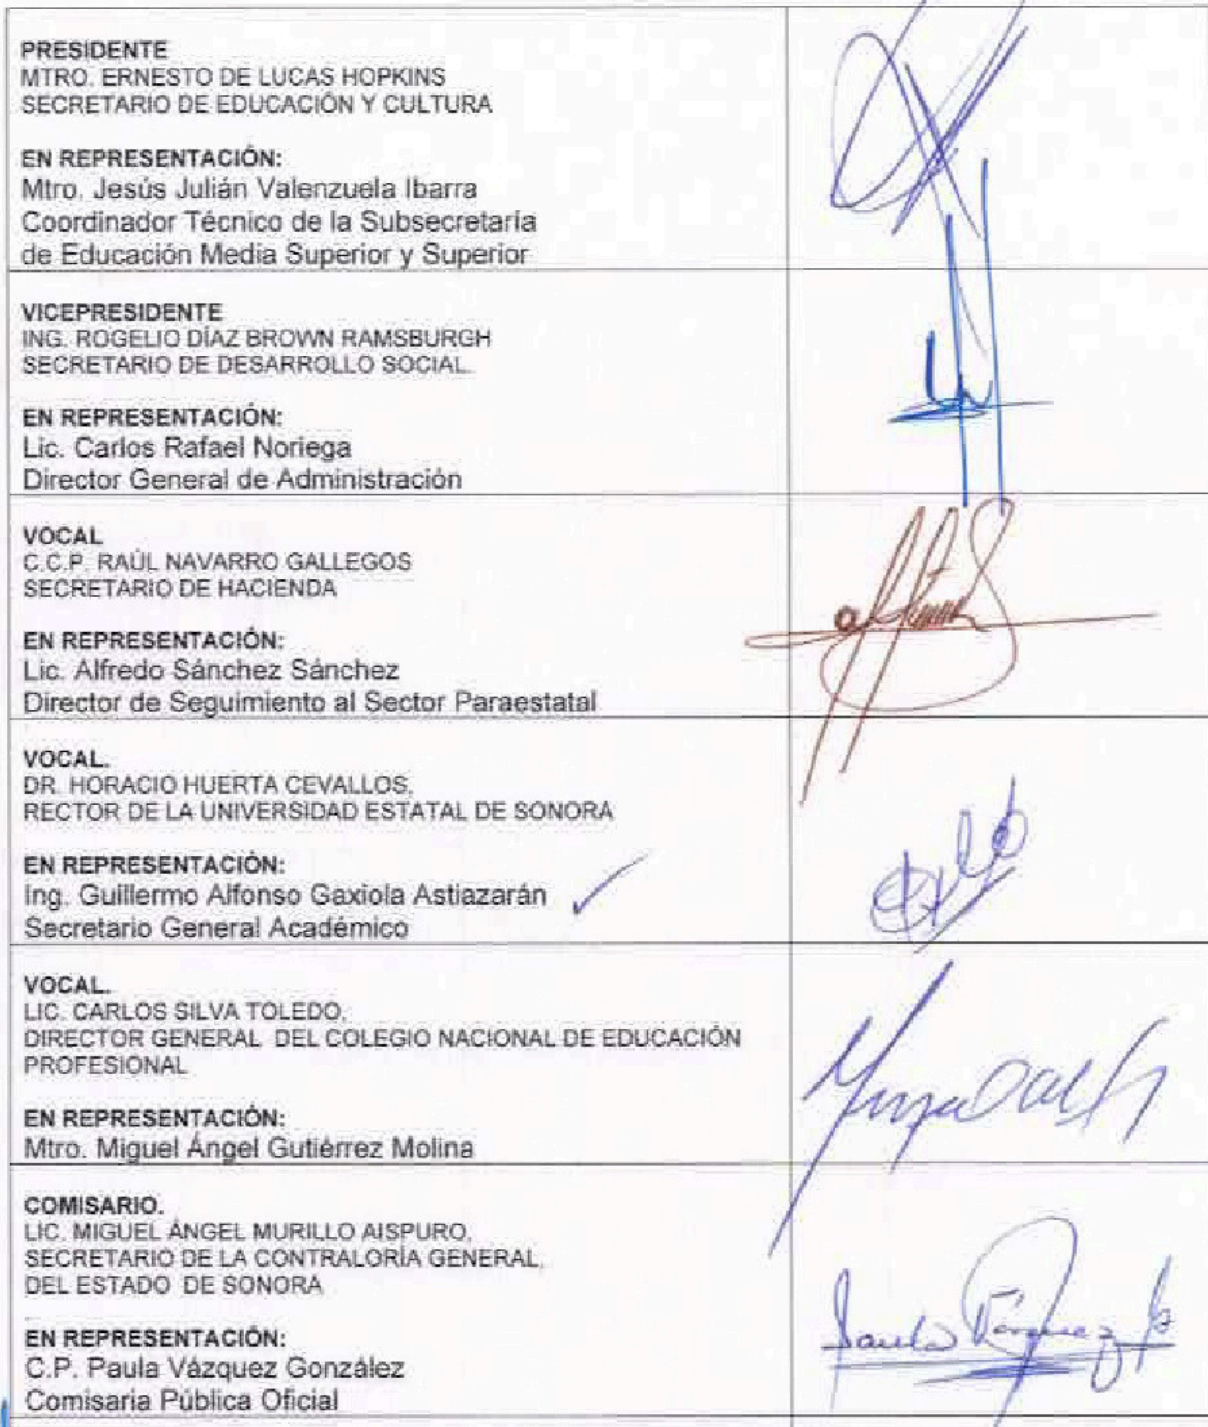 PRESIDENTE
MTRO. ERNESTO DE LUCAS HOPKINS
SECRETARIO DE EDUCACIÓN Y CULTURA
EN REPRESENTACIÓN:
Mtro. Jesús Julián Valenzuela Ibarra
Coordinador Técnico de la Subsecretaría
de Educación Media Superior y Superior
VICEPRESIDENTE
ING. ROGELIO DÍAZ BROWN RAMSBURGH
SECRETARIO DE DESARROLLO SOCIAL.
EN REPRESENTACIÓN:
Lic. Carlos Rafael Noriega
Director General de Administración
VOCAL
C.C.P. RAÚL NAVARRO GALLEGOS
SECRETARIO DE HACIENDA
EN REPRESENTACIÓN:
Lic. Alfredo Sánchez Sánchez
Director de Seguimiento al Sector Paraestatal
VOCAL.
DR. HORACIO HUERTA CEVALLOS,
RECTOR DE LA UNIVERSIDAD ESTATAL DE SONORA
EN REPRESENTACIÓN:
Ing. Guillermo Alfonso Gaxiola Astiazarán
Secretario General Académico
VOCAL.
LIC. CARLOS SILVA TOLEDO,
DIRECTOR GENERAL DEL COLEGIO NACIONAL DE EDUCACIÓN
PROFESIONAL
EN REPRESENTACIÓN:
Mtro. Miguel Ángel Gutiérrez Molina
COMISARIO.
LIC. MIGUEL ÁNGEL MURILLO AISPURO,
SECRETARIO DE LA CONTRALORÍA GENERAL,
DEL ESTADO DE SONORA
EN REPRESENTACIÓN:
C.P. Paula Vázquez González
Comisaria Pública Oficial
Paula Vázquez G